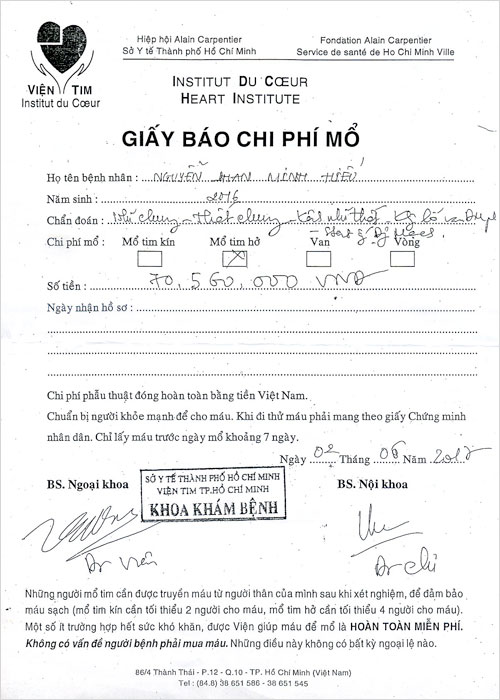 Hiệp hội Alain Carpentier
Sở Y tế Thành phố Hồ Chí Minh
Fondation Alain Carpentier
Service de santé de Ho Chi Minh Ville
VIỆN TIM
Institut du Cœur
INSTITUT DU CŒUR
HEART INSTITUTE
GIẤY BÁO CHI PHÍ MỔ
Họ tên bệnh nhân : NGUYỄN MINH HIẾU
Năm sinh : 2016
Chẩn đoán : Nhĩ chung - Thất chung -
Chi phí mổ : Mổ tim kín Mổ tim hở Van Vòng
Số tiền : 70,560,000 VNĐ
Ngày nhận hồ sơ :
Chi phí phẫu thuật đóng hoàn toàn bằng tiền Việt Nam.
Chuẩn bị người khỏe mạnh để cho máu. Khi đi thử máu phải mang theo giấy Chứng minh
nhân dân. Chỉ lấy máu trước ngày mổ khoảng 7 ngày.
Ngày 02 Tháng 06 Năm 2017
BS. Ngoại khoa
SỞ Y TẾ THÀNH PHỐ HỒ CHÍ MINH
VIỆN TIM TP.HỒ CHÍ MINH
KHOA KHÁM BỆNH
BS. Nội khoa
Dr Viên
Dr Chi
Những người mổ tim cần được truyền máu từ người thân của mình sau khi xét nghiệm, để đảm bảo
máu sạch (mổ tim kín cần tối thiểu 2 người cho máu, mổ tim hở cần tối thiểu 4 người cho máu).
Một số ít trường hợp hết sức khó khăn, được Viện giúp máu để mổ là HOÀN TOÀN MIỄN PHÍ.
Không có vấn đề người bệnh phải mua máu. Những điều này không có bất kỳ ngoại lệ nào.
86/4 Thành Thái - P.12 - Q.10 - TP. Hồ Chí Minh (Việt Nam)
Tel : (84.8) 38 651 586 - 38 651 545